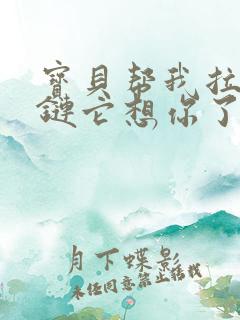 寶貝帮我拉
鏈它想你了
月下蝶影
未任同意禁止转载